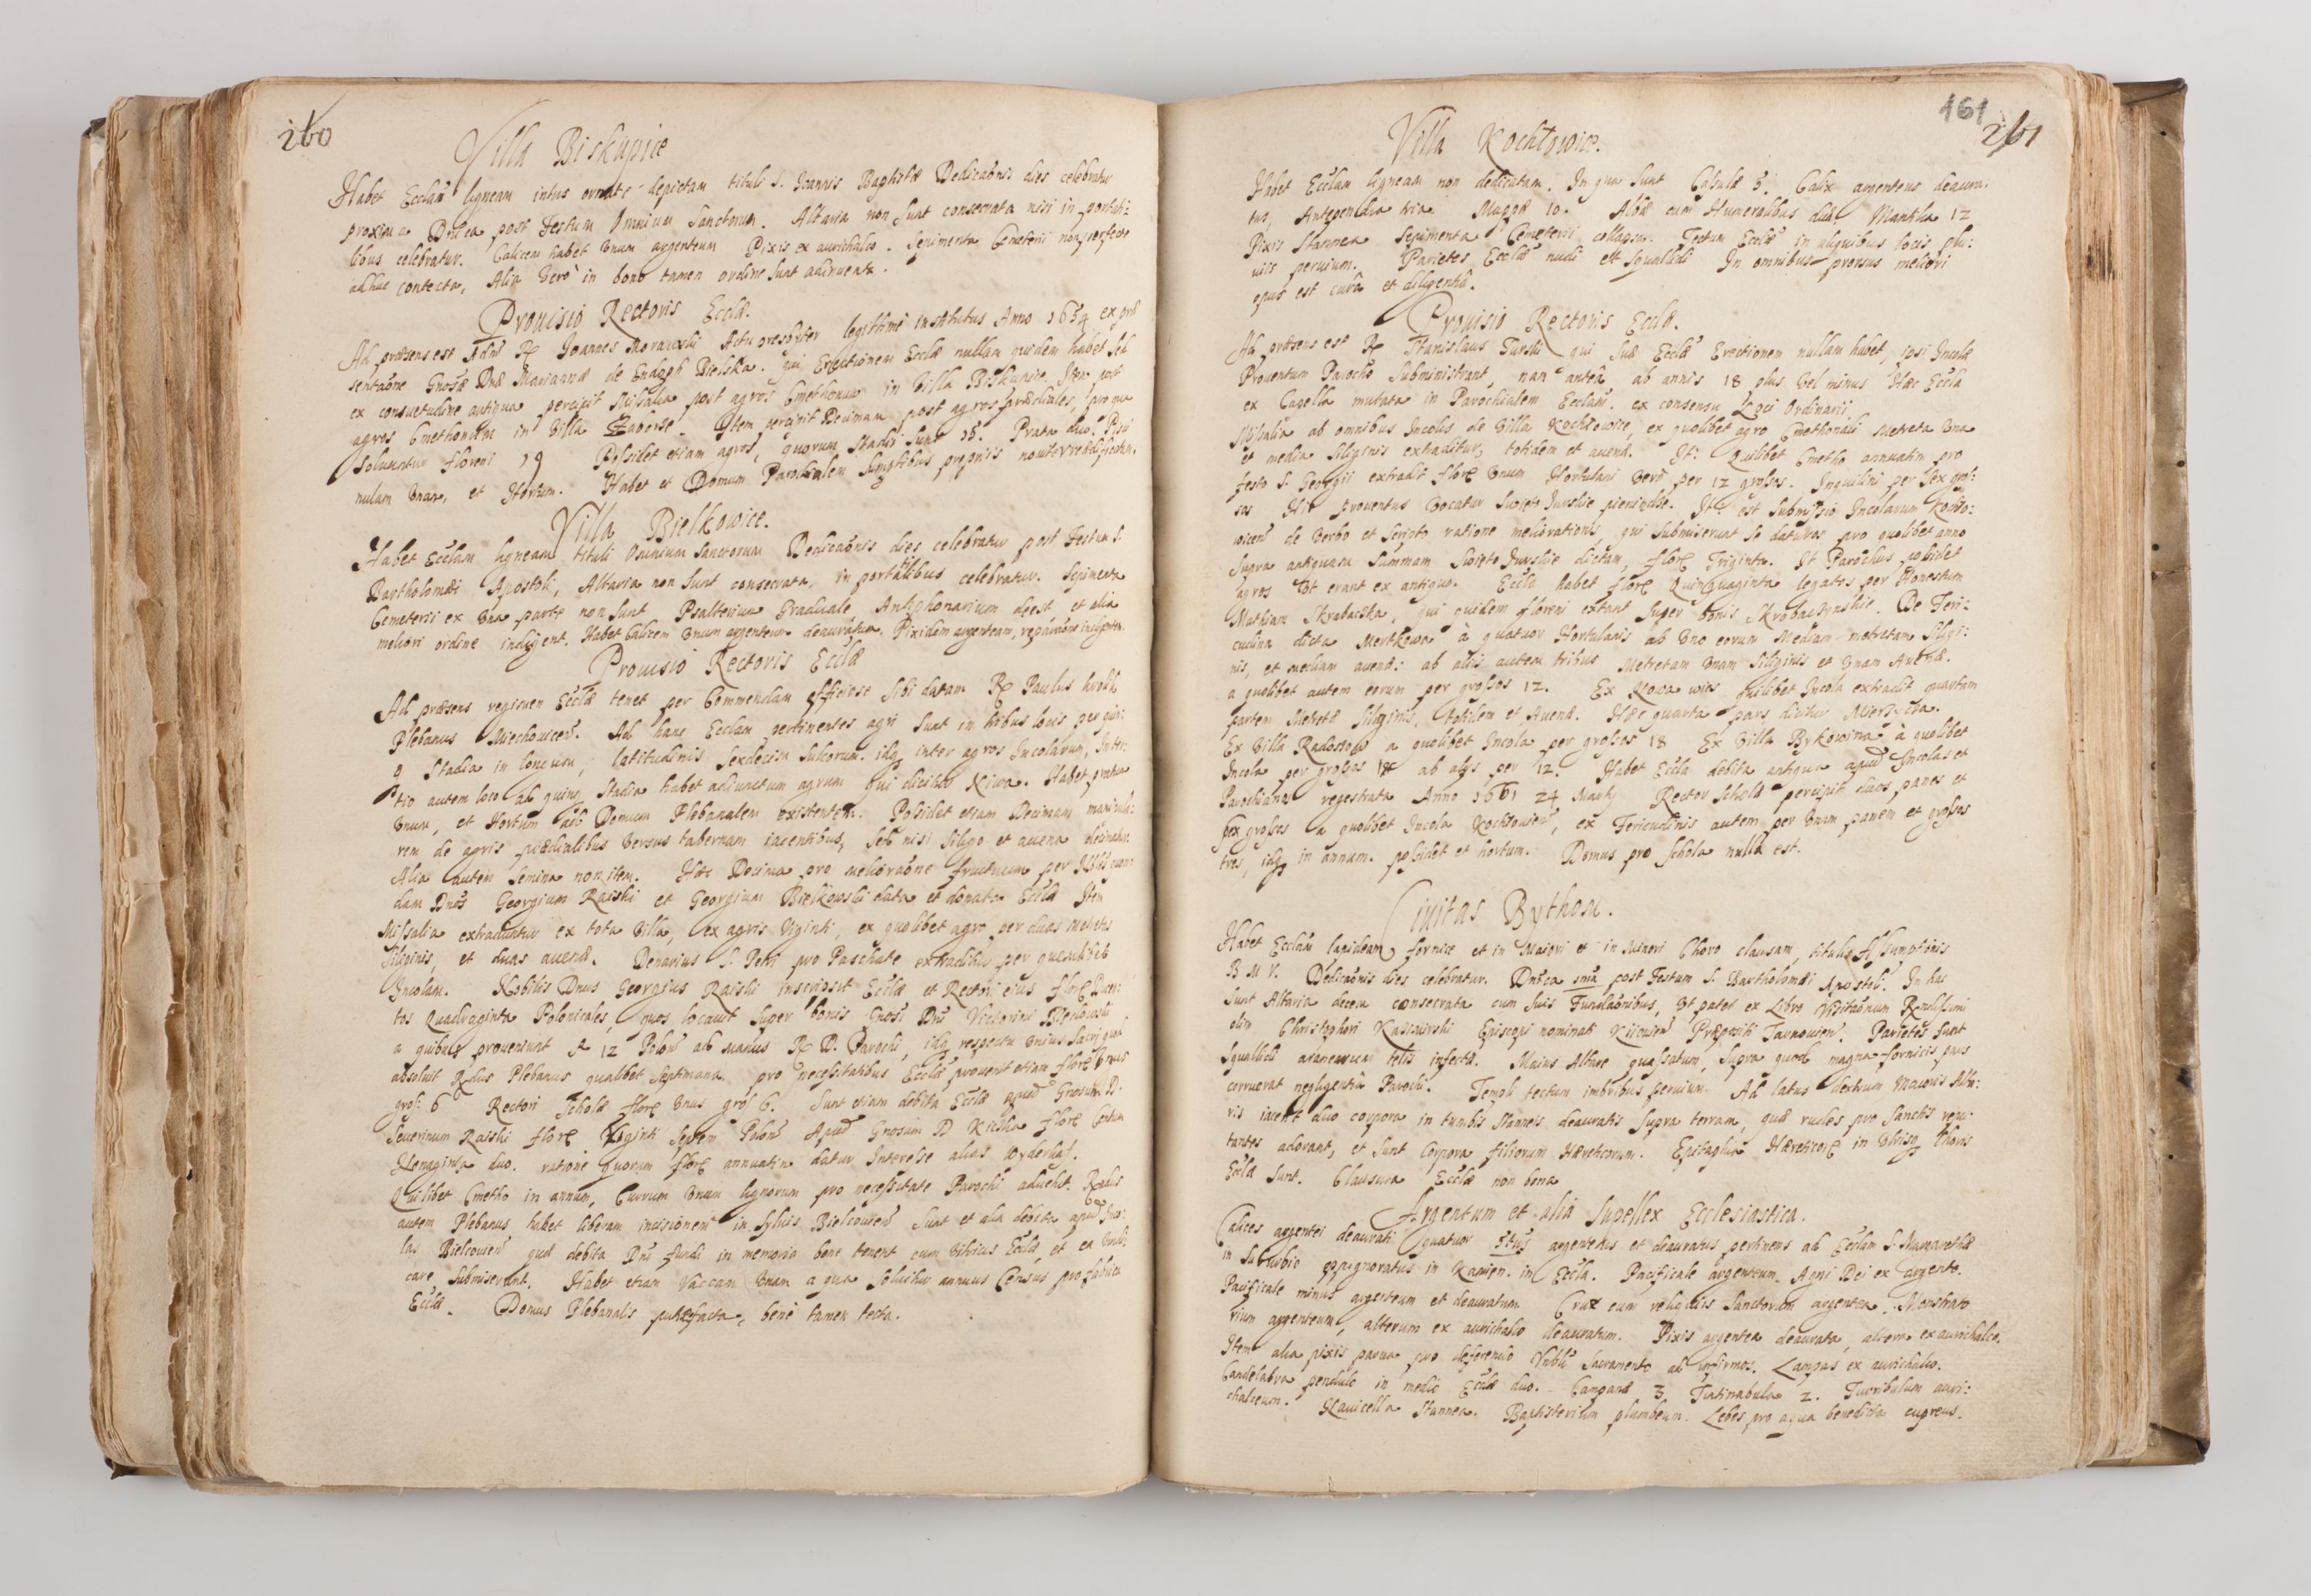 260
Villa Biskupice
Habet Ecclam ligneam intus ornate depictam tituli S. Joannis Baptistæ Dedicaõnis dies celebratur
proxima Dnica post Festum Omnium Sanctorum. Altaria non sunt consecrata nisi in portati:
libus celebratur. Calicem habet Vnum argenteum Pixis ex aurichalco. Sepimenta Cemeterii non perfecte
adhuc contecta, Alia Verò in bono tamen ordine sunt adinventa.
Prouisio Rectoris Ecclæ.
Ad præsens est Adm R Joannes Morawski Actu presbiter legithmè institutus Anno 1654 ex præ
sentaõne Gnosæ Dnæ Mariannæ de Bielska. qui Erectionem Ecclæ nullam quidem habet sed
ex consuetudine antiqua percipit Missalia post agros Cmethonum in Villa Biskupice. Item post
agros Cmethonum in Villa Zaborse. Item percipit Decimam post agros prædiales, pro qua
soluuntur floreni 19 Possidet etiam agros, quorum stadia sunt 15. Prata duo. Pisci
nulam Vnam, et Hortum. Habet et Domum Parochialem sumptibus proprijs nouiter reædificatam.
Villa Bielkowice.
Habet Ecclam ligneam tituli Omnium Sanctorum Dedicaõnis dies celebratur post Festum S.
Bartholomæi Apostoli, Altaria non sunt consecrata, in portatilibus celebratur. Sepimenta
Cemeterii ex Vna parte non sunt Psalterium Graduale, Antiphonarium deest, et alia
meliori ordine indigent. Habet Calicem Vnum argenteum deauratum. Pixidem argenteam, reparaõne indigentem.
Prouisio Rectoris Ecclæ
Ad præsens regimen Ecclæ tenet per Commendam officiose sibi datam R Paulus
Plebanus Miechouicen. Ad hanc Ecclam pertinentes agri sunt in tribus locis per
9 Stadia in longum, latitudinis sexdecim sulcorum. idq inter agros Incolarum, Inter:
tio autem loco ad quinq Stadia habet adiunctum agrum qui dicitur Niwa. Habet pratum
Vnum, et Hortum sub Domum Plebanalem existentem. Possidet etiam Decimam manipula:
rem de agris prædialibus Versus tabernam iacentibus, sed nisi siligo et auena
Alia autem semina non item. Hæc Decima pro melioraõne fructuum per Nobiles quon:
dam Dnos Georgium Raiski et Georgium Bielkowski data et donata Ecclæ Item
Missalia extraduntur ex tota Villa, ex agris Viginti, ex quolibet agro per duas metretas
Siliginis, et duas auenæ. Denarius S. Petri pro Paschate extraditur per quemlibet
Incolam. Nobilis Dnus Georgius Raiski inscripsit Ecclæ et Rectori eius flor Ducen:
tos Quadraginta Polonicales, quos locauit super bonis Gnosi Dni Victorini
a quibus proueniunt R 12 Polon ad manus R D. Parochi, idq respectu Vnius Sacri quod
absoluit Rdus Plebanus qualibet Septimana pro necessitatibus Ecclæ prouenit etiam flor Vnus
gros: 6 Rectori Scholæ flor Vnus gros 6. Sunt etiam debita Ecclæ apud Gnosum D.
Seuerinum Raiski flor Viginti septem Polon Apud Gnosum D Kiczka flor Centum
Nonaginta duo. ratione quorum flor annuatim datur Interesse alias Wyderkaf.
Quilibet Cmetho in annum, Currum Vnum lignorum pro necessitate Parochi aduehit. Rndus
autem Plebanus habet liberam incisionem in syluis Bielcouien Sunt et alia debita apud Inco:
las Bielcouien quæ debita Dni fundi in memoria bene tenent cum Vitricus Ecclæ, et ea
care submiserunt. Habet etiam Vaccam Vnam a qua soluitur annuus Census pro fabrica
Ecclæ. Domus Plebanalis putrefacta, benè tamen tecta.
161
261
Villa Kochlowice.
Habet Ecclam ligneam non dedicatam. In qua sunt Casulæ 3. Calix argenteus deaura:
tus, Antependia tria Mappæ 10. Albæ cum Humeralibus duæ Mantilia 12
Pixis stannea Sepimenta Cemeterii collapsa. Tectum Ecclæ in aliquibus locis plu:
uiis peruium. Parietes Ecclæ nudi et squallidi In omnibus prorsus meliori
opus est curâ et diligentiâ.
Prouisio Rectoris Ecclæ.
Ad præsens est R Stanislaus Turski qui suæ Ecclæ Erectionem nullam habet, ipsi Incolæ
Prouentum Parocho subministrant, nam anteà ab annis 18 plus Vel minus Hæc Eccla
ex Capella mutata in Parochialem Ecclam. ex consensu Loci Ordinarii
Missalia ab omnibus Incolis de Villa Kochlowice, ex quolibet agro Cmethonali Metreta Vna
et media siliginis extraditur, totidem et auenæ. It: Quilibet Cmetho annuatim pro
festo S. Georgii extradit flor Vnum Hortulani Verò per 12 grossos. Inquilini per sex gros:
sos Hic prouentus Vocatur Swięto Jurskie pieniądze. It: est submissio Incolarum Kochlo:
uicen de Verbo et scripto ratione meliorationis, qui submiserunt se daturos pro quolibet anno
supra antiquam summam Swięto Jurskie dictam, flor Triginta. It Parochus possidet
agros Vt erant ex antiquo. Eccla habet flor Quinquaginta legatos per Honestum
Mathiam Skrobaczka, qui quidem floreni extant super bonis Skrobaczynskie. De Feri:
cudina dicta Mertkowa à quatuor Hortulanis ab Vno eorum Mediam metretam siligi:
nis, et mediam auenæ: ab aliis autem tribus Metretam Vnam siliginis et Vnam Auenæ.
a quolibet autem eorum per grossos 12. Ex Nowa wies quilibet Incola extradit quartam
partem Metretæ siliginis, totidem et Auenæ. Hæc quarta pars dicitur Mierzycza.
Ex Villa Radoszow a quolibet Incola per grossos 18 Ex Villa Bykowina à quolibet
Incola per grossos 18 ab alijs per 12. Habet Eccla debita antiqua apud Incolas et
Parochianos regestrata Anno 1661 24 Martij. Rector Scholæ percipit duos panes et
sex grossos a quolibet Incola Kochlouien, ex Fericudinis autem per Vnum panem et grossos
tres, idq in annum. possidet et hortum. Domus pro schola nulla est.
Ciuitas Bythom.
Habet Ecclam lapideam fornice et in Maiori et in Minori Choro clausam, tituli Assumptionis
B M V. Dedicaõnis dies celebratur. Dnica 2nda post Festum S. Bartholomæi Apostoli. In hac
sunt Altaria decem consecrata cum suis Fundaõnibus, Vt patet ex Libro Visitaõnum Rndissimi
olim Christophori Kazimirski Episcopi nominati Kiiouien Præpositi Tarnouien. Parietes sunt
squallidi aranearum telis infecti. Maius Altare quassatum, supra quod magna fornicis pars
corruerat negligentiâ Parochi. Templi tectum imbribus peruium. Ad latus dextrum Maioris Alta:
ris iacent duo corpora in tumbis stanneis deauratis supra terram, quæ rudes pro Sanctis repu:
tantes adorant, et sunt Corpora filiorum Hæreticorum. Epitaphia Hæreticor in Vtrisq Choris
Ecclæ sunt. Clausura Ecclæ non bona
Argentum et alia Supellex Ecclesiastica.
Calices argentei deaurati quatuor 5tus argenteus et deauratus pertinens ad Ecclam S. Margarethæ
in suburbio oppignoratus in Kamien. in Eccla. Pacificale argenteum. Agni Dei ex argento.
Pacificale minus argenteum et deauratum Crux cum reliquiis Sanctorum argentea. Monstrato
rium argenteum, alterum ex aurichalco deauratum. Pixis argentea deaurata, altera ex aurichalco.
Item alia pixis parua pro deferendo Vnbli Sacramento ad infirmos. Lampas ex aurichalco.
Candelabra pendula in medio Ecclæ duo. Campanæ 3. Tintinabula 2. Turribulum auri:
chalceum. Nauicella stannea. Baptisterium plumbeum. Lebes pro aqua benedicta cupreus.